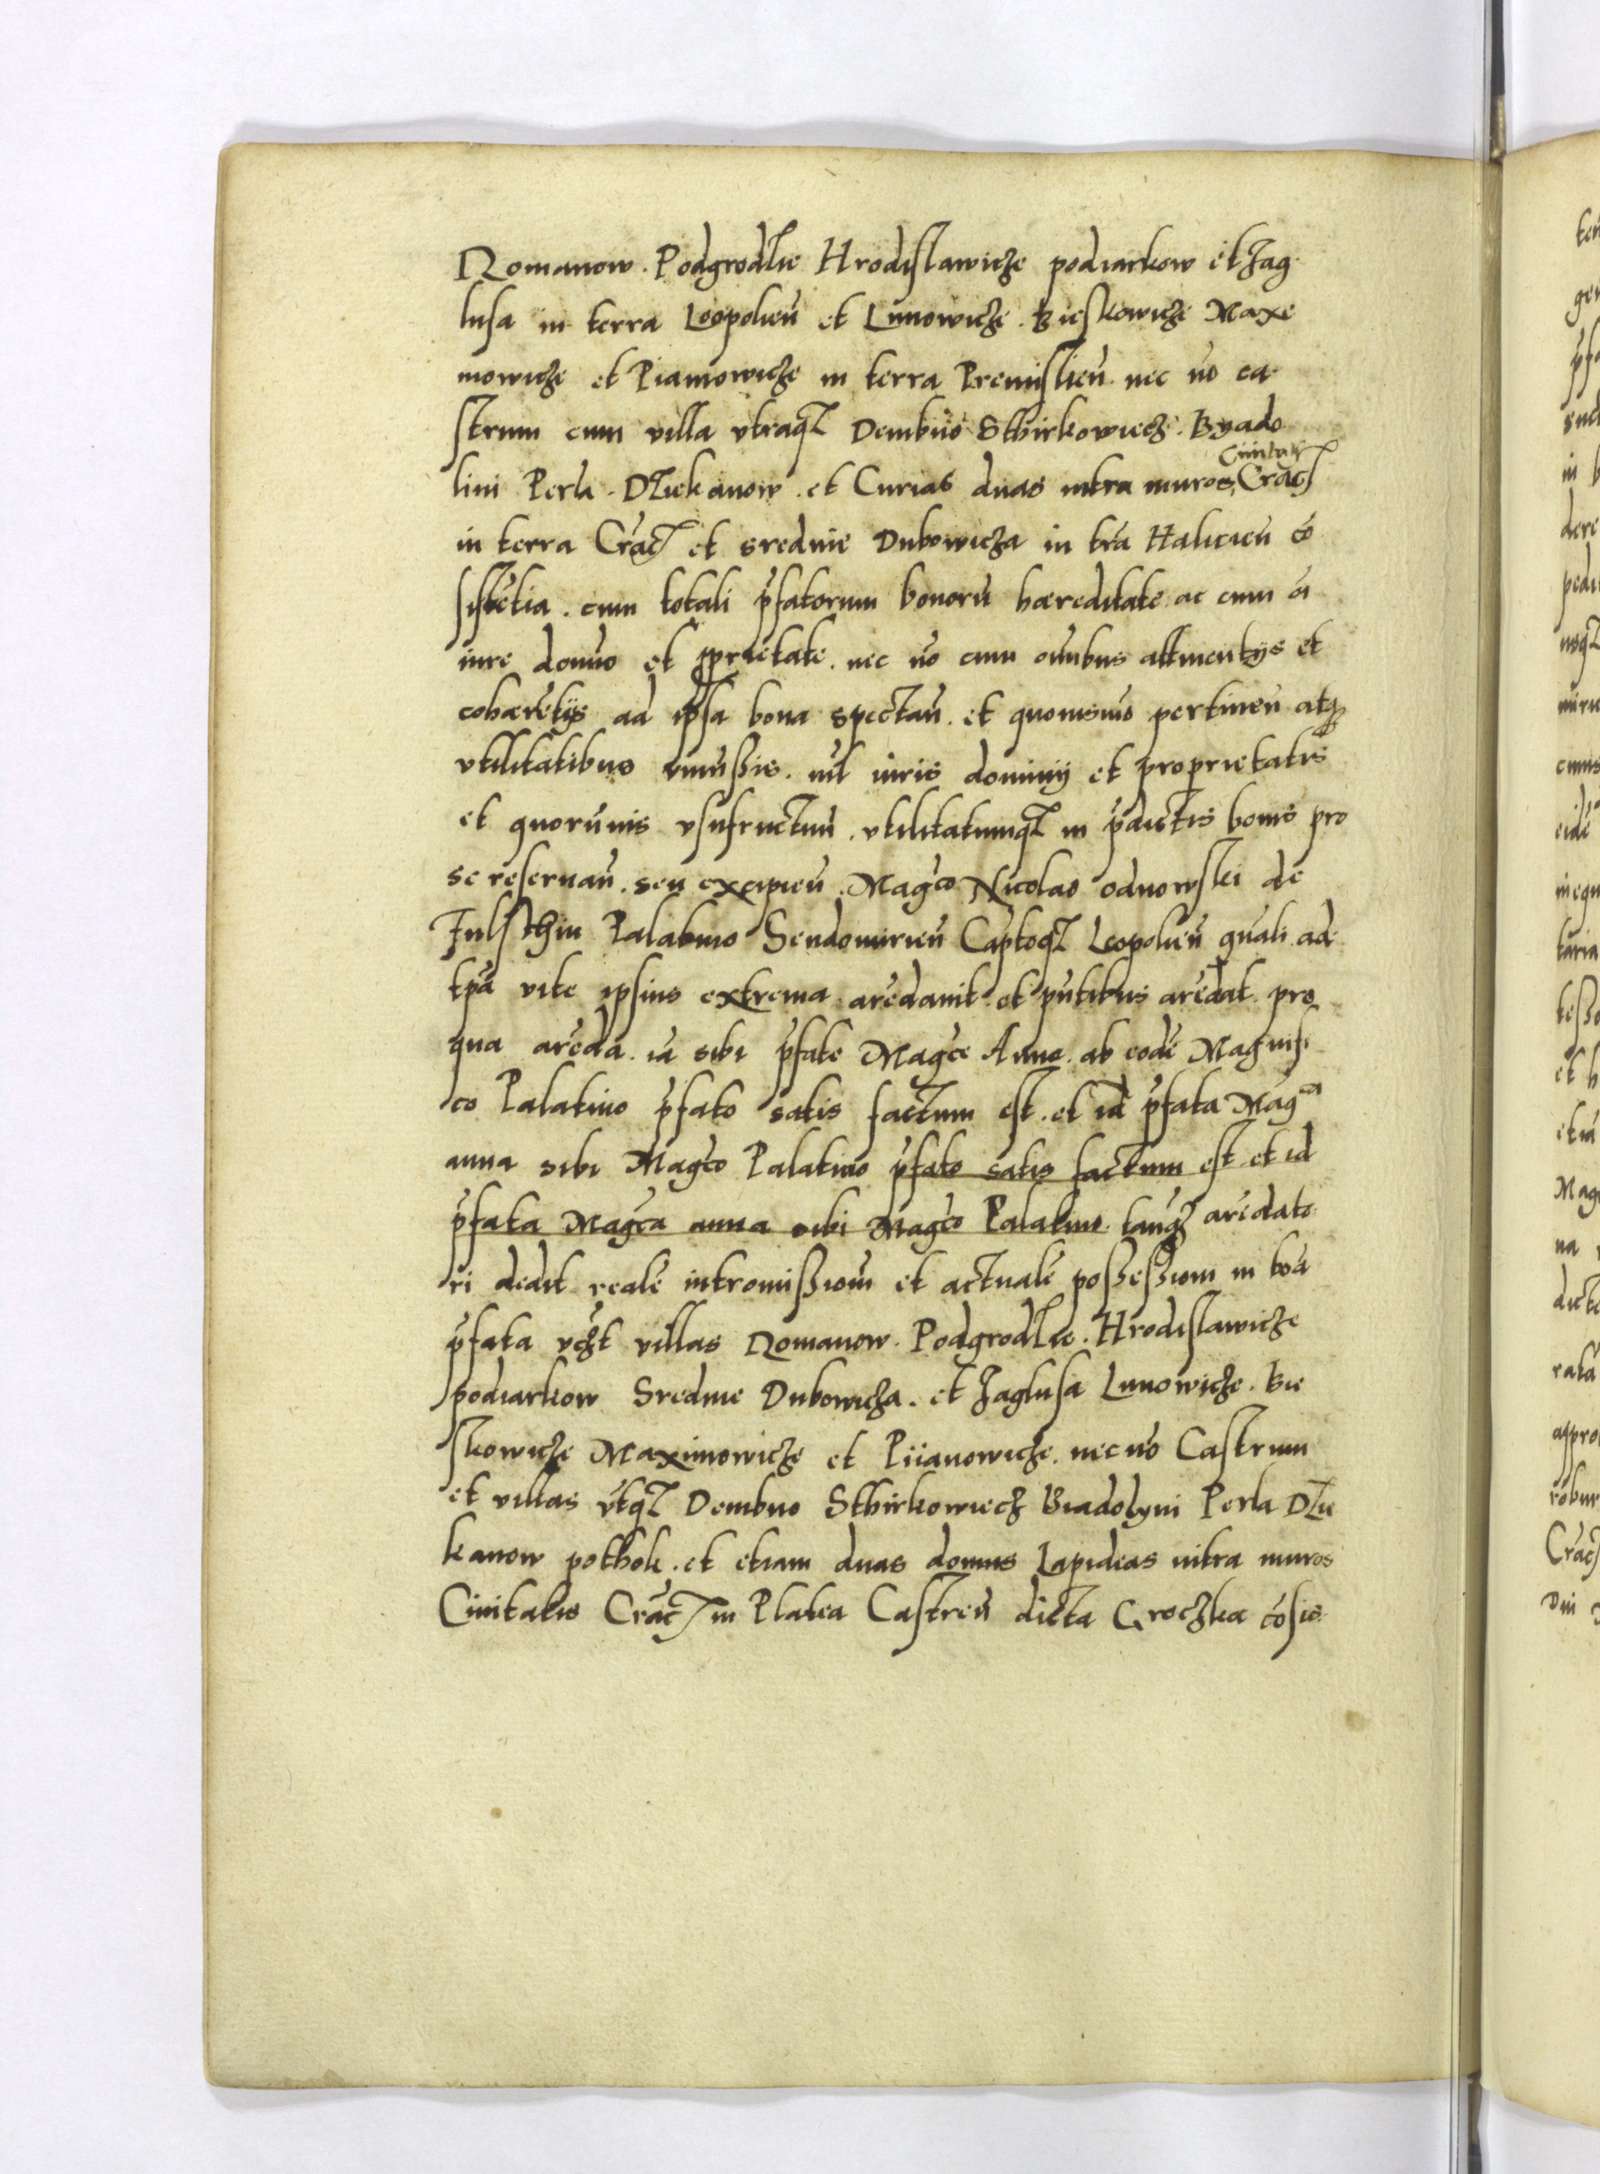 Romanow. Podgrodzie Hrodislawicze podiarkow et Jag
lusa in terra Leopolien̄ et Lunowicze. Bieskowicze Maxe
mowicze et Pianowicze in terra Premislien̄. nec nō ca
strum cum villa vtraq₃ Dembno Sthirkowiecz. Byado
lini Perla. Dziekanow. et Curias duas intra muros Ciuitatis Crac̄
in terra Crac̄ et srednie Dubowicza in trā Halicien̄ cō
sistētia. cum totali p̄fatorum bonorū haereditate ac cum oī
iure domīo et ꝓprietate. nec nō cum omībus attinentijs et
cohaerētijs ad ipsa bona spectan̄. et quomōmō pertinen̄ atq₃
vtilitatibus vniūssis. nīl iuris dominij et proprietatis
et quorūuis vsufructuū. vtilitatumq₃ in p̄dictis bonis pro
se reseruan̄. seu excipien̄. Magc̄o Nicolao odnowski de
Fulschtin Palatino Sendomirien̄ Captoq₃ Leopolien̄ quali ad
tp̄a vite ipsius extrema arēdauit et p̄ntibus arēdat. pro
qua arēda. iā sibi p̄fate Magc̄e Anne. ab eodē Magnifi
co Palatino p̄fato satis factum est. et id p̄fata Maḡca
anna sibi Magc̄o Palatino p̄fato satis factum est et id
p̄fata Magc̄a anna sibi Magc̄o Palatino tanq₃ arēdato
ri dedit realē intromissionē et actualē possessionē in boā
p̄fata vc₃t villas Romanow. Podgrodzie. Hrodislawicze
podiarkow Srednie Dubowicza. et Jaglusa Lunowicze. Bie
skowicze Maximowicze et Piianowicze. nec nō Castrum
et villas vtq₃ Dembno Sthirkowiecz Biadolyni Perla Dzie
kanow pothok. et etiam duas domus Lapideas intra muros
Ciuitatis Crac̄ in Platea Castren̄ dicta Groczka cōsis